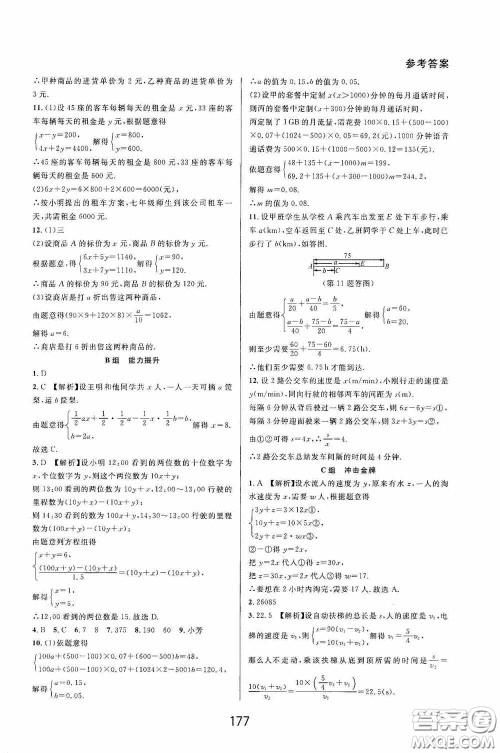 参考答案
∴甲种商品的进货单价为2元,乙种商品的进货单价为3元.
11.(1)设45座的客车每辆每天的租金是x元,33座的客车每辆每天的租金是y元,根据题意得
{x-y=200, 4x+2y=4400, 解得{x=800, y=600.
∴45座的客车每辆每天的租金是800元,33座的客车每辆每天的租金是600元.
(2)6x+2y=6×800+2×600=6000(元).
∴按小明提出的租车方案,七年级师生到该公司租车一天,共需租金6000元.
12.(1)三
(2)设商品A的标价为x元,商品B的标价为y元.
根据题意,得{6x+5y=1140, 3x+7y=1110, 解得{x=90, y=120.
∴商品A的标价是90元,商品B的标价是120元.
(3)设商店是打a折出售这两种商品.
由题意得(90×9+120×8)×a/10=1062.
解得a=6.
∴商店是打6折出售这两种商品的.
B组 能力提升
1.D
2.C 【解析】设王明和他同学共x人,一筐鸡
故选C.
3.D 【解析】设小明12:00看到的两位数的十位数字为x,个位数字为y,则这个两位数为10x+y;
则13:00看到的两位数为10y+x,12:00~13:00行驶的里程数为(10y+x)-(10x+y);
则14:30看到的数为100x+y,13:00~14:30行驶的里程数为(100x+y)-(10y+x).
由题意列方程组得
{x+y=6, ((100x+y)-(10y+x))/1.5=(10y+x)-(10x+y).
解得{x=1, y=5.
∴12:00看到的两位数是15.故选D.
4.B 5.C 6.7 7.8 8.375 8.190 60 9.小芳
10.(1)依题意得
{100a+(500-100)×0.07+(500-100)b=63, 100a+(500-100)×0.07+(1024×2-500)b=120.4.
解得{a=0.15, b=0.05.
∴a的值为0.15,b值为0.05.
(2)设甲的套餐中定制x(x>1000)分钟的每月通话时间,则丙的套餐中定制(x+300)分钟的每月通话时间,
丙定制了1GB的月流量,需花费100×0.15+(500-100)×0.07+(1024-500)×0.05=69.2(元),
依题意得{48+135+(x-1000)m=199, 69.2+135+(x+300-1000)m=244.2.
解得m=0.08.
∴m的值为0.08.
11.设甲班学生从学校A乘汽车出发至E处下车步行,乘车a(km),空车返回至C处,乙班同学于C处上车,此时已步行了b(km),如答图.
75
a
b
A C E B
(第11题答图)
由题意得{a/40+(a-b)/60=b/4, (a-b)/60+(75-b)/40=(75-a)/4, 解得{a=60, b=15.
则至少需要60/40+(75-60)/4=6.75(h)
∴他们至少需要6.75h才能到达.
12.设2路公交车的速度是x(m/min),小刚行走的速度是y(m/min),同向行驶的相邻两车的间距为s m.
每隔6分钟从背后开过一辆2路公交车,则6x-6y=s①
每隔3分钟迎面驶来一辆2路公交车,则3x+3y=s②
由①②可得s=4x,∴s/x=4
∴2路公交车总站发车间隔的时间是4分钟.
C组 冲击金牌
1.A 【解析】设水流入的速度为x,原来有水z,一人的淘水速度为y,时间为w.
{3y×10=z+10x①, 
①-②得,x=2y.
把x=2y代入①得z=10y.
把z=10y,x=2y代入③得w=17.
∴要想在2小时内淘完,需要17人.故选A.
2.26085
3.22.5 【解析】设自动扶梯的总长是s,人的速度是v₁,电梯的速度是v₂,则{s=90(v₁-v₂), s=10(v₁+v₂), 解得v₁=5/4 v₂
那么人不走动,乘该扶梯从底到顶所需的时间是s/v₂=
10(v₁+v₂)/v₂=10×(5/4 v₂+v₂)/v₂=22.5(s).
177